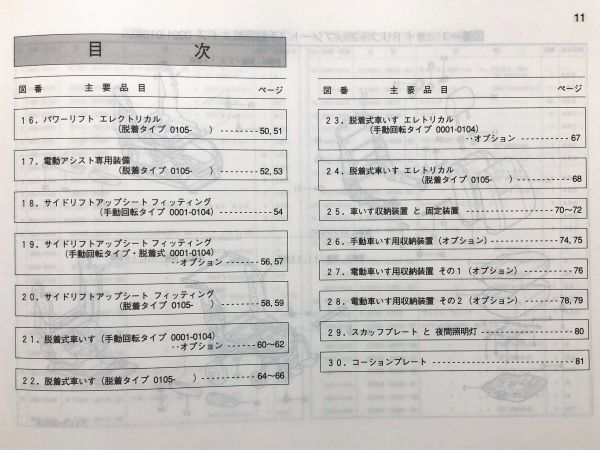 11
目 次
図 番 主 要 品 目 ページ
16. パワーリフト エレクトリカル
(脱着タイプ 0105- ) --------50,51
17. 電動アシスト専用装備
(脱着タイプ 0105- ) --------52,53
18. サイドリフトアップシート フィッティング
(手動回転タイプ 0001-0104) --------54
19. サイドリフトアップシート フィッティング
(手動回転タイプ・脱着式 0001-0104)
‥オプション --------56,57
20. サイドリフトアップシート フィッティング
(脱着タイプ 0105- ) --------58,59
21. 脱着式車いす (手動回転タイプ 0001-0104)
‥オプション --------60〜62
22. 脱着式車いす (脱着タイプ 0105- ) --------64〜66
図 番 主 要 品 目 ページ
23. 脱着式車いす エレトリカル
(手動回転タイプ 0001-0104)
‥オプション --------67
24. 脱着式車いす エレトリカル
(脱着タイプ 0105- ) --------68
25. 車いす収納装置 と 固定装置 --------70〜72
26. 手動車いす用収納装置 (オプション) --------74,75
27. 電動車いす用収納装置 その1 (オプション) --------76
28. 電動車いす用収納装置 その2 (オプション) --------78,79
29. スカッフプレート と 夜間照明灯 --------80
30. コーションプレート --------81